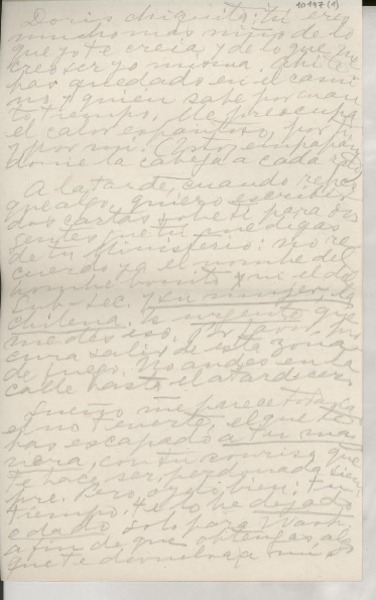 10147 (1)
Doris chiquita: tú eres
mucho más niño de lo
que yo te creía y de lo que
creo ser yo misma. Ahí te
has quedado en el cami
no y quién sabe por cuan
to tiempo. Me preocupa
el calor espantoso, por ti
y por mí. Estoy empapán
dome la cabeza a cada
A la tarde, cuando refres
que algo, quiero escribir
dos cartas sobre ti para
que tú me digas
de tu Ministerio: no re
cuerdo ya el nombre del
hombre bonito y ni el del
Sub-Sec. y su mujer, la
chilena. Es urgente que
me des eso. Por favor, pro
cura salir de esta zona
de fuego. No andes en la
calle hasta el atardecer.
Sueño me parece todavía
el no tenerte, el que te
has escapado a tu ma
nera, con tu sonrisa que
te hace ser perdonada siem
pre. Pero, oye bien: tu
tiempo te lo he dejado
cedado solo para Wash.
a fin de que obtengas algo
que te devuelva a